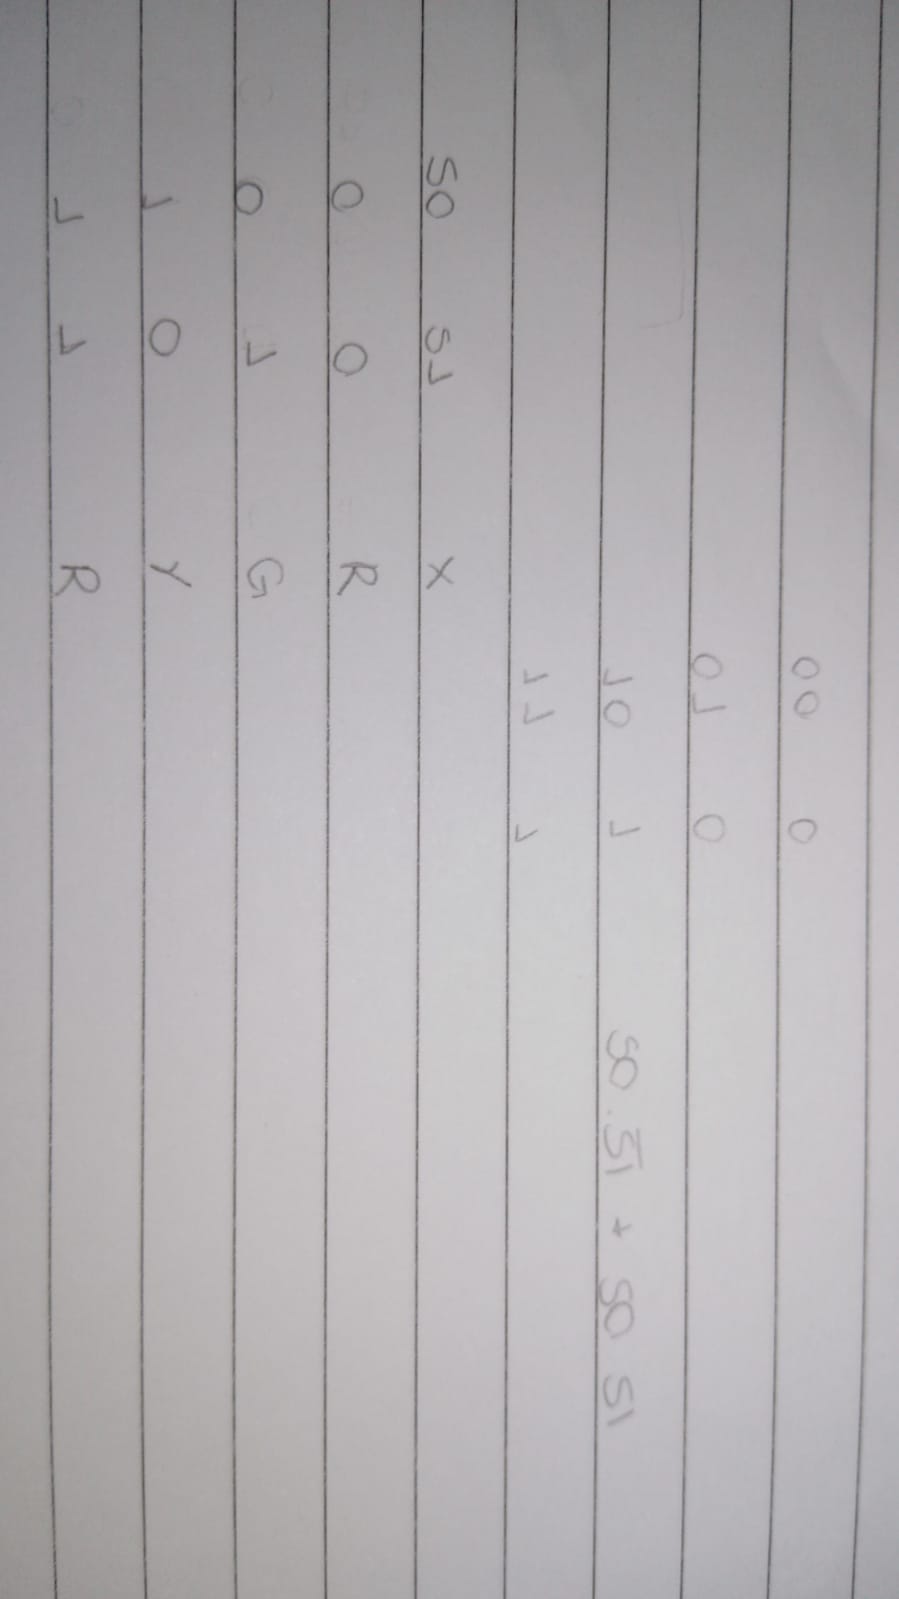 00 0
01 0
10 1 S0 . S̅1̅ + S0 S1
11 1
S0 S1 X
0 0 R
0 1 G
1 0 Y
1 1 R